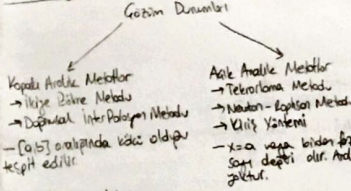 Çözüm Durumları
Kapalı Aralık Metotlar
→ İkiye Bölme Metodu
→ Doğrusal İnterpolasyon Metodu
- [a,b] aralığında kökü olduğu
tespit edilir.
Açık Aralık Metotlar
→ Tekrarlama Metodu
→ Newton-Raphson Metodu
→ Kiriş Yöntemi
- x=a veya birden
sayı değeri alır.
yoktur.